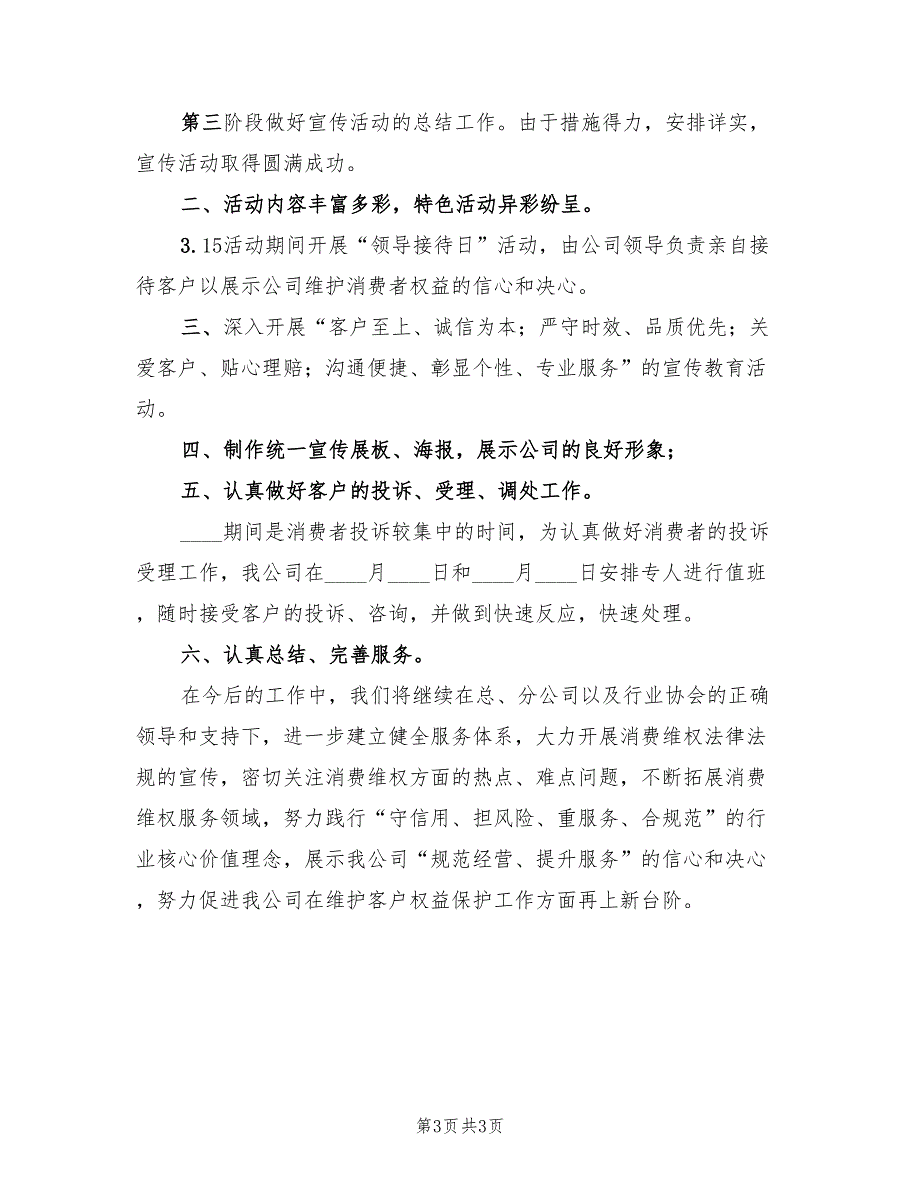 第三阶段做好宣传活动的总结工作。由于措施得力，安排详实，
宣传活动取得圆满成功。
二、活动内容丰富多彩，特色活动异彩纷呈。
3.15活动期间开展“领导接待日”活动，由公司领导负责亲自接
待客户以展示公司维护消费者权益的信心和决心。
三、深入开展“客户至上、诚信为本；严守时效、品质优先；关
爱客户、贴心理赔；沟通便捷、彰显个性、专业服务”的宣传教育活
动。
四、制作统一宣传展板、海报，展示公司的良好形象；
五、认真做好客户的投诉、受理、调处工作。
____期间是消费者投诉较集中的时间，为认真做好消费者的投诉
受理工作，我公司在____月____日和____月____日安排专人进行值班
，随时接受客户的投诉、咨询，并做到快速反应，快速处理。
六、认真总结、完善服务。
在今后的工作中，我们将继续在总、分公司以及行业协会的正确
领导和支持下，进一步建立健全服务体系，大力开展消费维权法律法
规的宣传，密切关注消费维权方面的热点、难点问题，不断拓展消费
维权服务领域，努力践行“守信用、担风险、重服务、合规范”的行
业核心价值理念，展示我公司“规范经营、提升服务”的信心和决心
，努力促进我公司在维护客户权益保护工作方面再上新台阶。
第3页 共3页